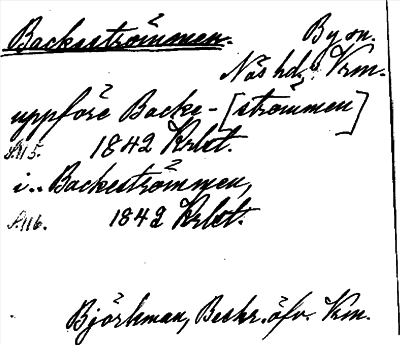 Backeströmmen. By sn.
Näs hd, Vrm.
uppföre Backe-[strömmen]
s. 115. 1842 Krbt.
i.. Backeströmmen,
s. 116. 1842 Krbt.
Björkman, Beskr. öfv. Vrm.